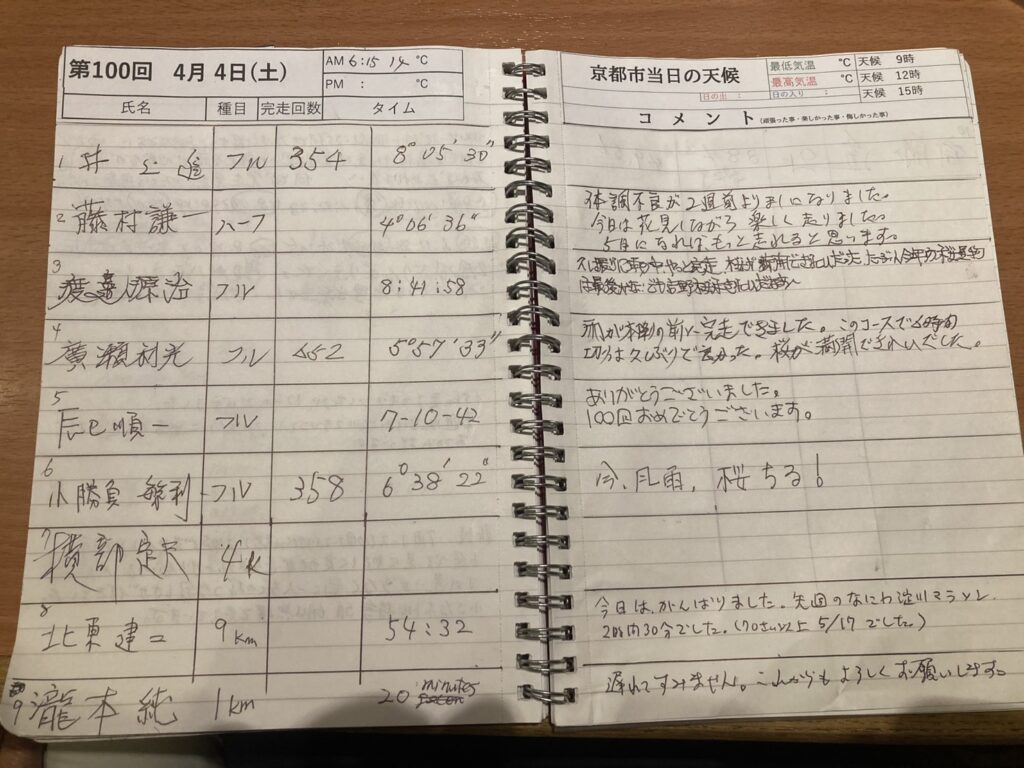 第100回 4月 4日(土)
AM 6:15 14 °C
PM : °C
氏名 種目 完走回数 タイム
1 井上 進 フル 354 8°05'30"
2 藤村謙一 ハーフ 4°06'36"
3 フル 8:41:58
4 廣瀬利光 フル 652 5°57'33"
5 辰巳順一 フル 7-10-42
6 小勝負 フル 358 6°38'22"
7 4k
8 北 建二 9km 54:32
9 瀧本 純 1km 20 minutes
京都市当日の天候
最低気温 °C 天候 9時
最高気温 °C 天候 12時
日の出 : 日の入り : 天候 15時
コメント(頑張った事・楽しかった事・悔しかった事)
体調不良が2週前よりましになりました。
今日は花見しながら楽しく走りました。
5月になればもっと走れると思います。
雨が本降の前に完走できました。このコースで6時間
切りは久しぶりで良かった。桜が満開できれいでした。
ありがとうございました。
100回おめでとうございます。
今、風雨、桜ちる!
今日は、がんばりました。先週のなにわ淀川マラソン
2時間30分でした。(70さい以上 5/17 でした。)
遅れてすみません。これからもよろしくお願いします。